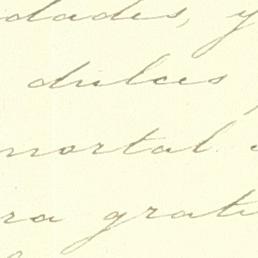 dades, y
dulces
mortal
ra grati